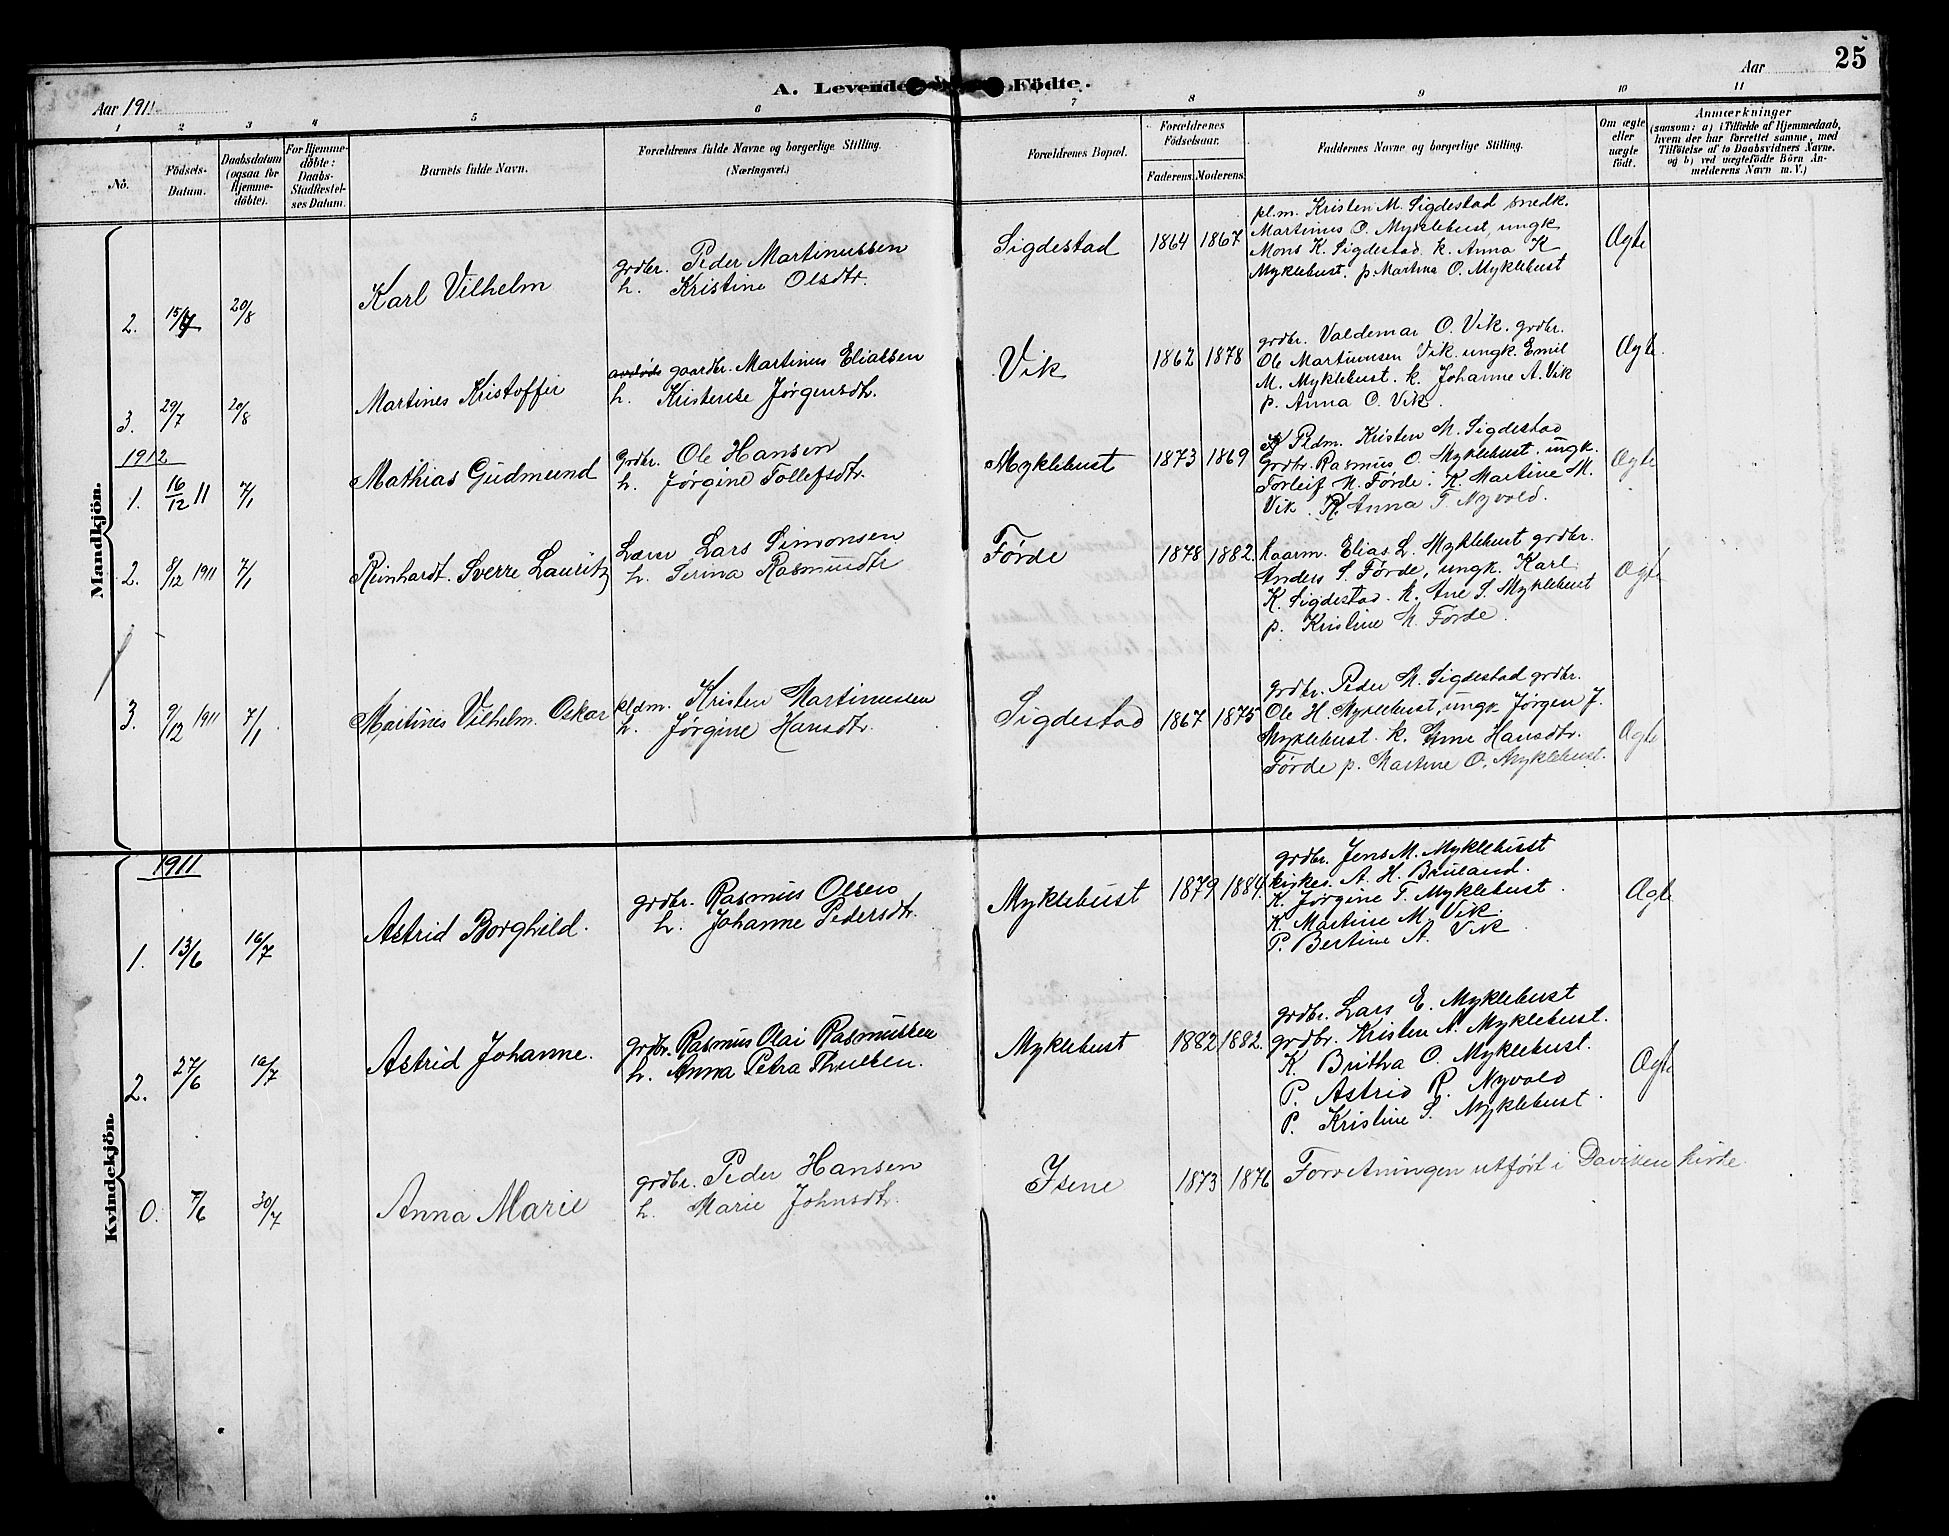 25
A. Levende Födte.
Aar 1911
Aar
1 2 3 4 5 6 7 8 9 10 11
No.
Födsels-Datum.
Daabsdatum (ogsaa for Hjemme-döbte).
For Hjemme-döbte: Daabs-Stadfæstel-ses Datum.
Barnets fulde Navn.
Forældrenes fulde Navne og borgerlige Stilling. (Næringsvei.)
Forældrenes Bopæl.
Forældrenes Födselsaar.
Faderens. Moderens.
Faddernes Navne og borgerlige Stilling.
Om ægte eller uægte födt.
Anmærkninger
(saasom: a) i Tilfælde af Hjemmedaab,
hvem der har forrettet samme, med
Tilföielse af to Daabsvidners Navne.
og b) ved uægtefödte Börn An-
melderens Navn m. V.)
Mandkjön.
2. 15/7 20/8 Karl Vilhelm
grdbr. Peder Martinussen
h. Kristine Olsdtr.
Sigdestad 1864 1867
pl.m. Kristen M. Sigdestad snedk.
Martinus O. Myklebust, ungk
Mons K. Sigdestad k. Anna K
Myklebust. p Martina O. Myklebust
Ægte
3. 29/7 20/8 Martines Kristoffer
avdøde gaardbr. Martinus Eliassen
h. Kristense Jørgensdtr.
Vik 1862 1878
grdbr. Valdemar O. Vik. grdbr.
Ole Martinusen Vik. ungk. Emil
M. Myklebust. k. Johanne A. Vik
p. Anna O. Vik.
Ægte
1912
1. 16/12 11 7/1 Mathias Gudmund
Grdbr. Ole Hansen
h. Jørgine Tollefsdtr.
Myklebust 1873 1869
Pldm. Kristen M. Sigdestad
Grdbr. Rasmus O. Myklebust. ungk.
Torleif M. Førde. K. Martine M.
Vik. K. Anna T. Nyvold.
Ægte
2. 8/12 1911 7/1 Reinhardt. Sverre Lauritz
Lærer Lars Simonsen
h. Serina Rasmusdtr
Førde 1878 1882.
kaarm. Elias L. Myklebust grdbr.
Anders S. Førde, ungk. Karl
K. Sigdestad. k. Ane S. Myklebust
p. Kristine M. Førde.
Ægte
3. 9/12 1911 7/1. Martines Vilhelm. Oskar
pldm. Kristen Martinussen
h. Jørgine Hansdtr.
Sigdestad 1867 1875
grdbr. Peder M. Sigdestad grdbr.
Ole H. Myklebust, ungk. Jørgen J.
Myklebust. k. Ane Hansdtr.
Førde p. Martine O. Myklebust.
Ægte
Kvindekjön.
1911
1. 13/6 16/7 Astrid Borghild.
grdbr. Rasmus Olsen
h. Johanne Pedersdtr.
Myklebust 1879 1884.
grdbr. Jens M. Myklebust
kirkes. A. H. Bruland.
K. Jørgine T. Myklebust.
K. Martine M. Vik.
P. Bertine A. Vik
Ægte
2. 27/6 16/7 Astrid Johanne.
grdbr. Rasmus Olai Rasmussen
h. Anna Petra
Myklebust 1882 1882.
grdbr. Lars E. Myklebust
grdbr. Kristen A. Myklebust.
K. Britha O. Myklebust.
P. Astrid R. Nyvold
P. Kristine S. Myklebust.
Ægte
0. 7/6 30/7 Anna Marie
grdbr. Peder Hansen
h. Marie Johnsdtr.
Isene 1873 1876
Forretningen utført i Daviken kirke.